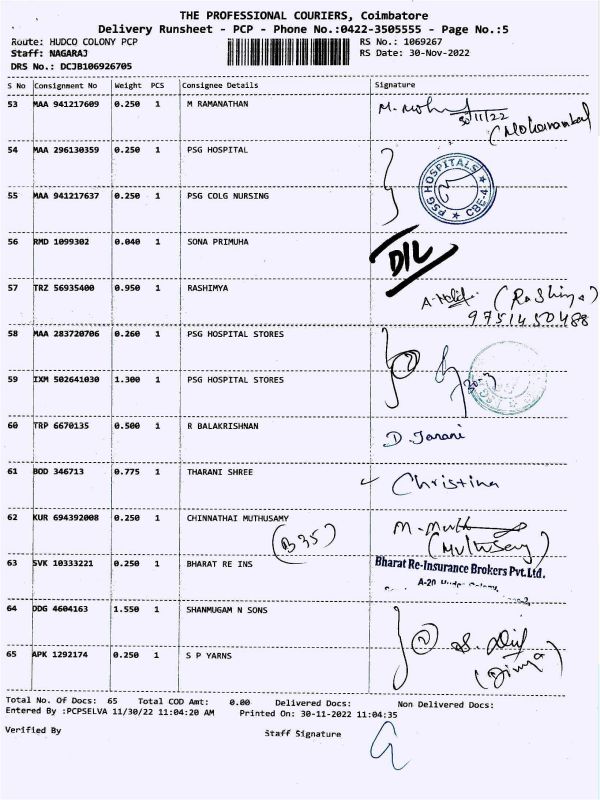 THE PROFESSIONAL COURIERS, Coimbatore
Delivery Runsheet - PCP - Phone No.:0422-3505555 - Page No.:5
Route: HUDCO COLONY PCP RS No.: 1069267
Staff: NAGARAJ RS Date: 30-Nov-2022
DRS No.: DCJB106926705
S No Consignment No Weight PCS Consignee Details Signature
53 MAA 941217609 0.250 1 M RAMANATHAN
30/11/22
54 MAA 296130359 0.250 1 PSG HOSPITAL
PSG HOSPITALS CBE-4
55 MAA 941217637 0.250 1 PSG COLG NURSING
56 RMD 1099302 0.040 1 SONA PRIMUHA
D/L
57 TRZ 56935400 0.950 1 RASHIMYA
9751450488
58 MAA 283720706 0.260 1 PSG HOSPITAL STORES
59 IXM 502641030 1.300 1 PSG HOSPITAL STORES
60 TRP 6670135 0.500 1 R BALAKRISHNAN
D. Janani
61 BOD 346713 0.775 1 THARANI SHREE
Christina
62 KUR 694392008 0.250 1 CHINNATHAI MUTHUSAMY
(B35)
63 SVK 10333221 0.250 1 BHARAT RE INS
Bharat Re-Insurance Brokers Pvt.Ltd.
A-20
64 DDG 4604163 1.550 1 SHANMUGAM N SONS
65 APK 1292174 0.250 1 S P YARNS
Total No. Of Docs: 65 Total COD Amt: 0.00 Delivered Docs: Non Delivered Docs:
Entered By :PCPSELVA 11/30/22 11:04:20 AM Printed On: 30-11-2022 11:04:35
Verified By Staff Signature